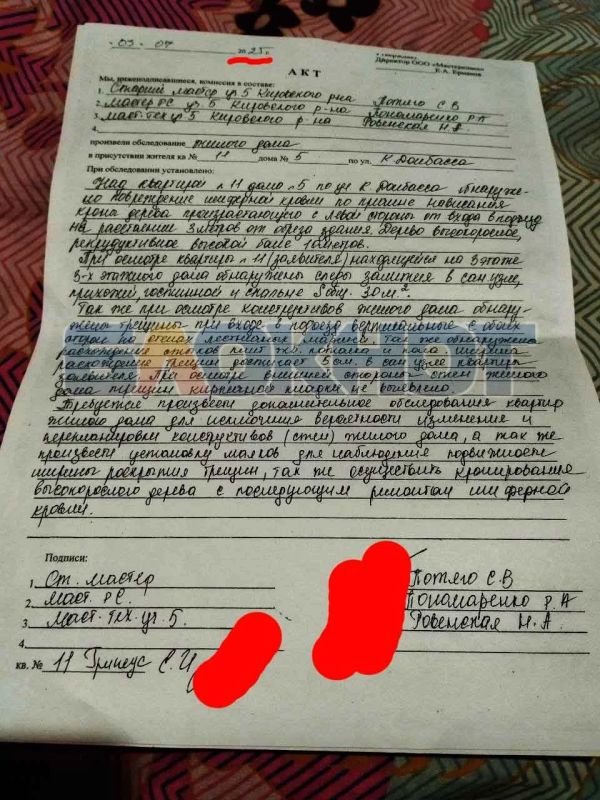 03 - 07 2025 г.
Директор ООО «Мастеровик»
Е.А. Ермаков
АКТ
Мы, нижеподписавшиеся, комиссия в составе:
1. Старший мастер уч 5 Кировского р-на Потяго С В
2. Мастер РС уч. 5 Кировского р-на Пономаренко Р А
3. Маст. тех уч 5 Кировского р-на Ровенская Н. А.
4.
произвели обследование жилого дома
в присутствии жителя кв № 11 дома № 5 по ул. К Донбасса
При обследовании установлено:
Над квартирой п 11 дома п 5 по ул К Донбасса обнаруже-
но повреждение шиферной кровли по причине нависания
крона дерева произрастающего с левой стороны от входа в подъезд
на расстоянии 3 метров от обреза здания. Дерево высокорослое,
высотой более 10 метров.
При осмотре квартиры п 11 (заявителя) находящейся на 3 этаже
3-х этажного дома обнаружены следы залития в сан узле,
прихожей, гостинной и спальне S общ. 30 м².
Так же при осмотре конструктивов жилого дома обнару-
жены трещины при входе в подъезд вертикальные с обоих
сторон на стенах лестничных маршей. Так же обнаружено
расхождение стыков плит ж.б. потолка и пола. Ширина
расхождения трещин достигает 5 см. в сан узле квартиры
заявителя. При осмотре внешней стороны стен жилого
дома трещин кирпичной кладки не выявлено.
Требуется произвести дополнительное обследования квартир
жилого дома для исключения вероятности изменения и
перепланировки конструктивов (стен) жилого дома, а так же
произвести установку маяков для наблюдения подвижности
ширины раскрытия трещин, так же осуществить кронирования
высокорослого дерева с последующим ремонтом шиферной
кровли.
TRUKHA
Подписи:
1. Ст. мастер Потяго С. В
2. Маст. РС. Пономаренко Р. А
3. Маст. тех. уч. 5. Ровенская Н. А.
4.
кв. № 11 С. И